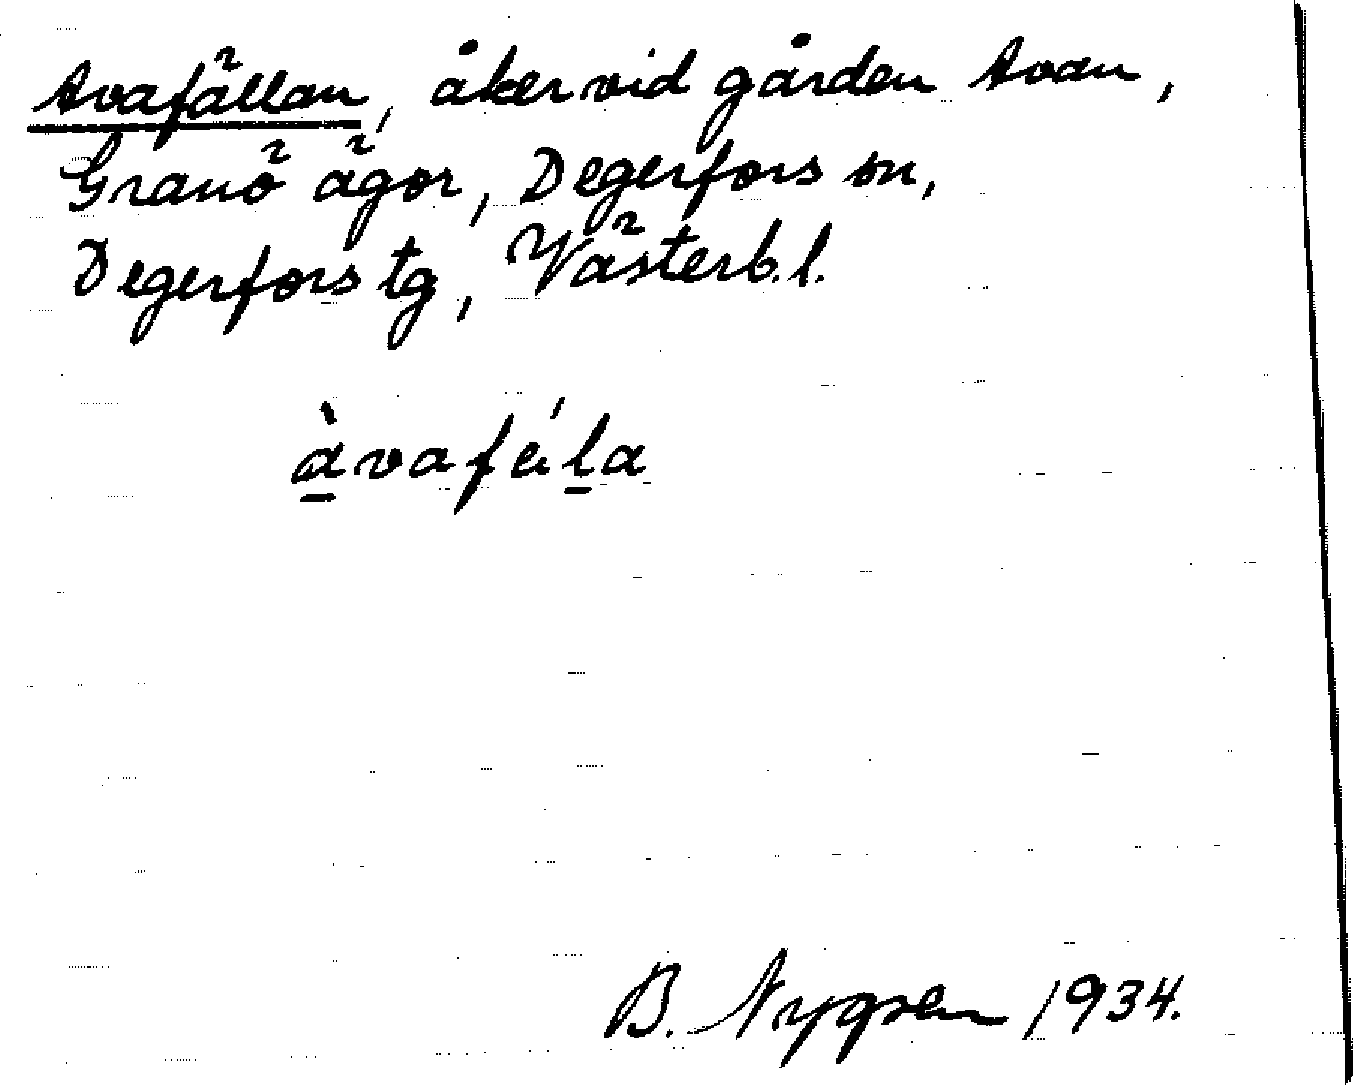 Avafällan, åker vid gården Avan,
Granö ägor, Degerfors sn,
Degerfors tg, Västerb. l.
àvaféla
B. Nygren 1934.